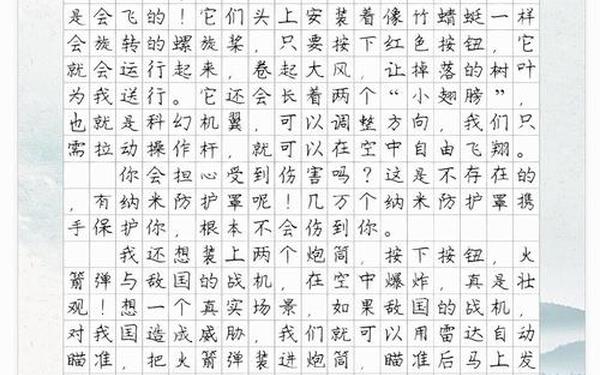 是会飞的！它们头上安装着像竹蜻蜓一样
会旋转的螺旋桨，只要按下红色按钮，它
就会运行起来，卷起大风，让掉落的树叶
为我送行。它还会长着两个“小翅膀”，
也就是科幻机翼，可以调整方向，我们只
需拉动操作杆，就可以在空中自由飞翔。
你会担心受到伤害吗？这是不存在的
，有纳米防护罩呢！几万个纳米防护罩携
手保护你，根本不会伤到你。
我还想装上两个炮筒，按下按钮，火
箭弹与敌国的战机，在空中爆炸，真是壮
观！想一个真实场景，如果敌国的战机，
对我国造成威胁，我们就可以用雷达自动
瞄准，把火箭弹装进炮筒，瞄准后马上发